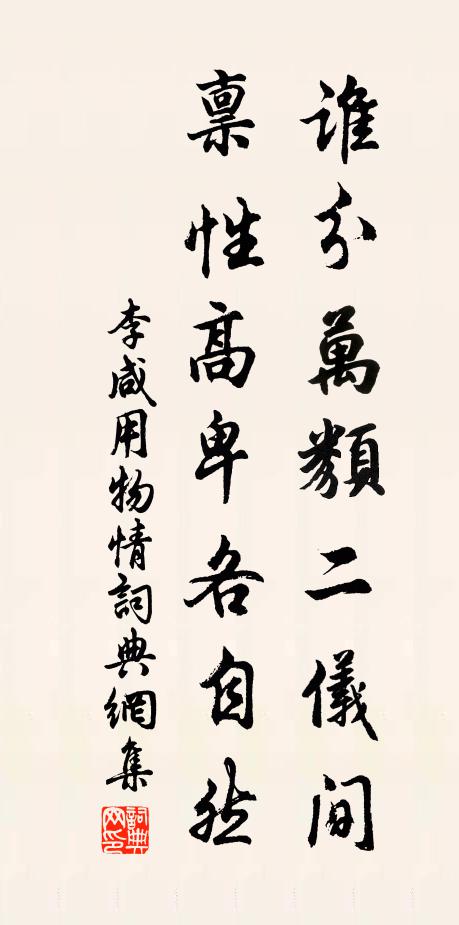 誰分萬類二儀間
禀性高卑各自然
李咸用物情詞典網集
詞典網印